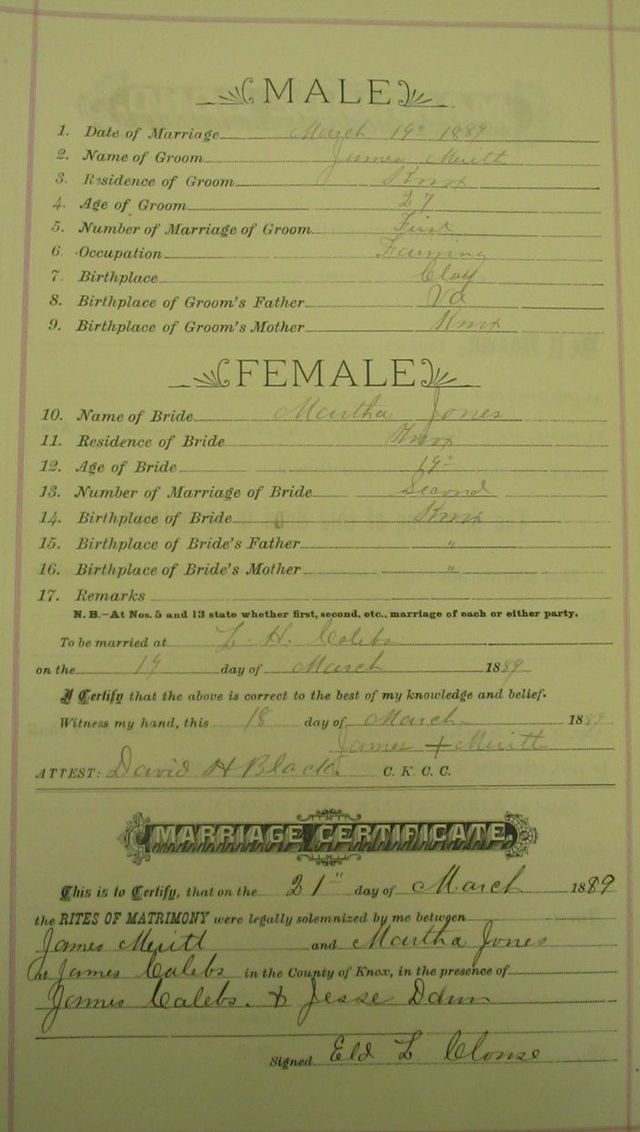 MALE
1. Date of Marriage March 19" 1889
2. Name of Groom James Meritt
3. Residence of Groom Knox
4. Age of Groom 27
5. Number of Marriage of Groom First
6. Occupation Farming
7. Birthplace Clay
8. Birthplace of Groom's Father Va
9. Birthplace of Groom's Mother Knox
FEMALE
10. Name of Bride Martha Jones
11. Residence of Bride Knox
12. Age of Bride 19"
13. Number of Marriage of Bride Second
14. Birthplace of Bride Knox
15. Birthplace of Bride's Father "
16. Birthplace of Bride's Mother "
17. Remarks
N. B.—At Nos. 5 and 13 state whether first, second, etc., marriage of each or either party.
To be married at L. H. Calebs
on the 19 day of March 1889
I Certify that the above is correct to the best of my knowledge and belief.
Witness my hand, this 18 day of March 1889
James + Meritt
ATTEST: David H Black. C. K. C. C.
MARRIAGE CERTIFICATE.
This is to Certify, that on the 21" day of March 1889
the RITES OF MATRIMONY were legally solemnized by me between
James Meritt and Martha Jones
at James Calebs in the County of Knox, in the presence of
James Calebs. & Jesse
Signed Eld L Clouse